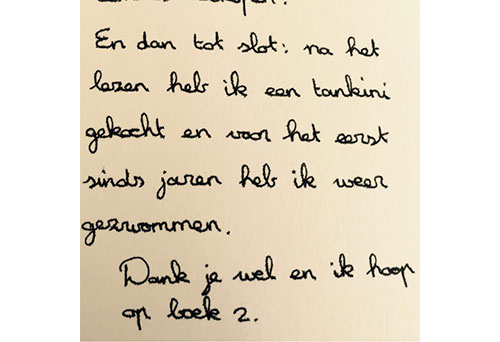 En dan tot slot: na het
lezen heb ik een tankini
gekocht en voor het eerst
sinds jaren heb ik weer
gezwommen.
Dank je wel en ik hoop
op boek 2.